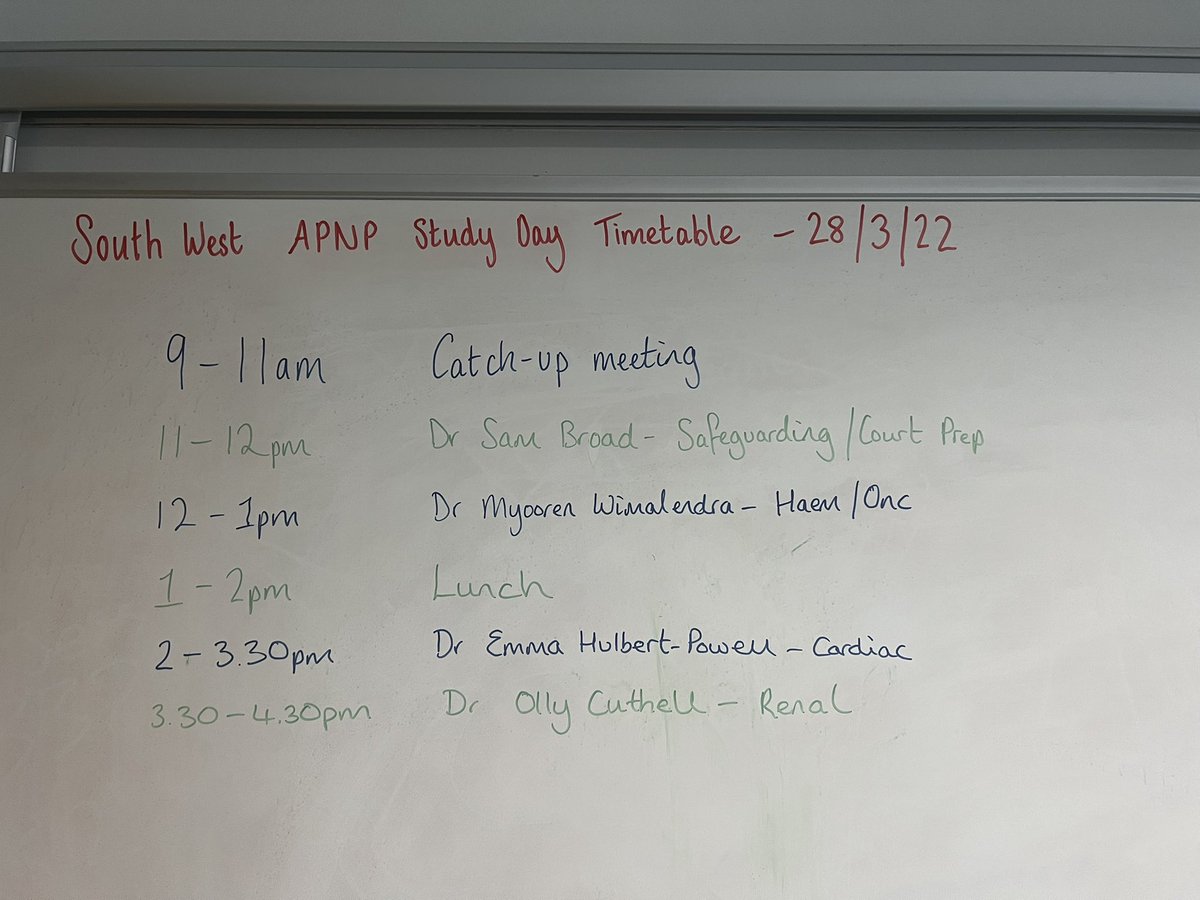 South West APNP Study Day Timetable - 28/3/22
9 - 11am Catch-up meeting
11 - 12pm Dr Sam Broad - Safeguarding / Court Prep
12 - 1pm Dr Myooren Wimalendra - Haem / Onc
1 - 2pm Lunch
2 - 3.30pm Dr Emma Hulbert-Powell - Cardiac
3.30 - 4.30pm Dr Olly Cuthell - Renal